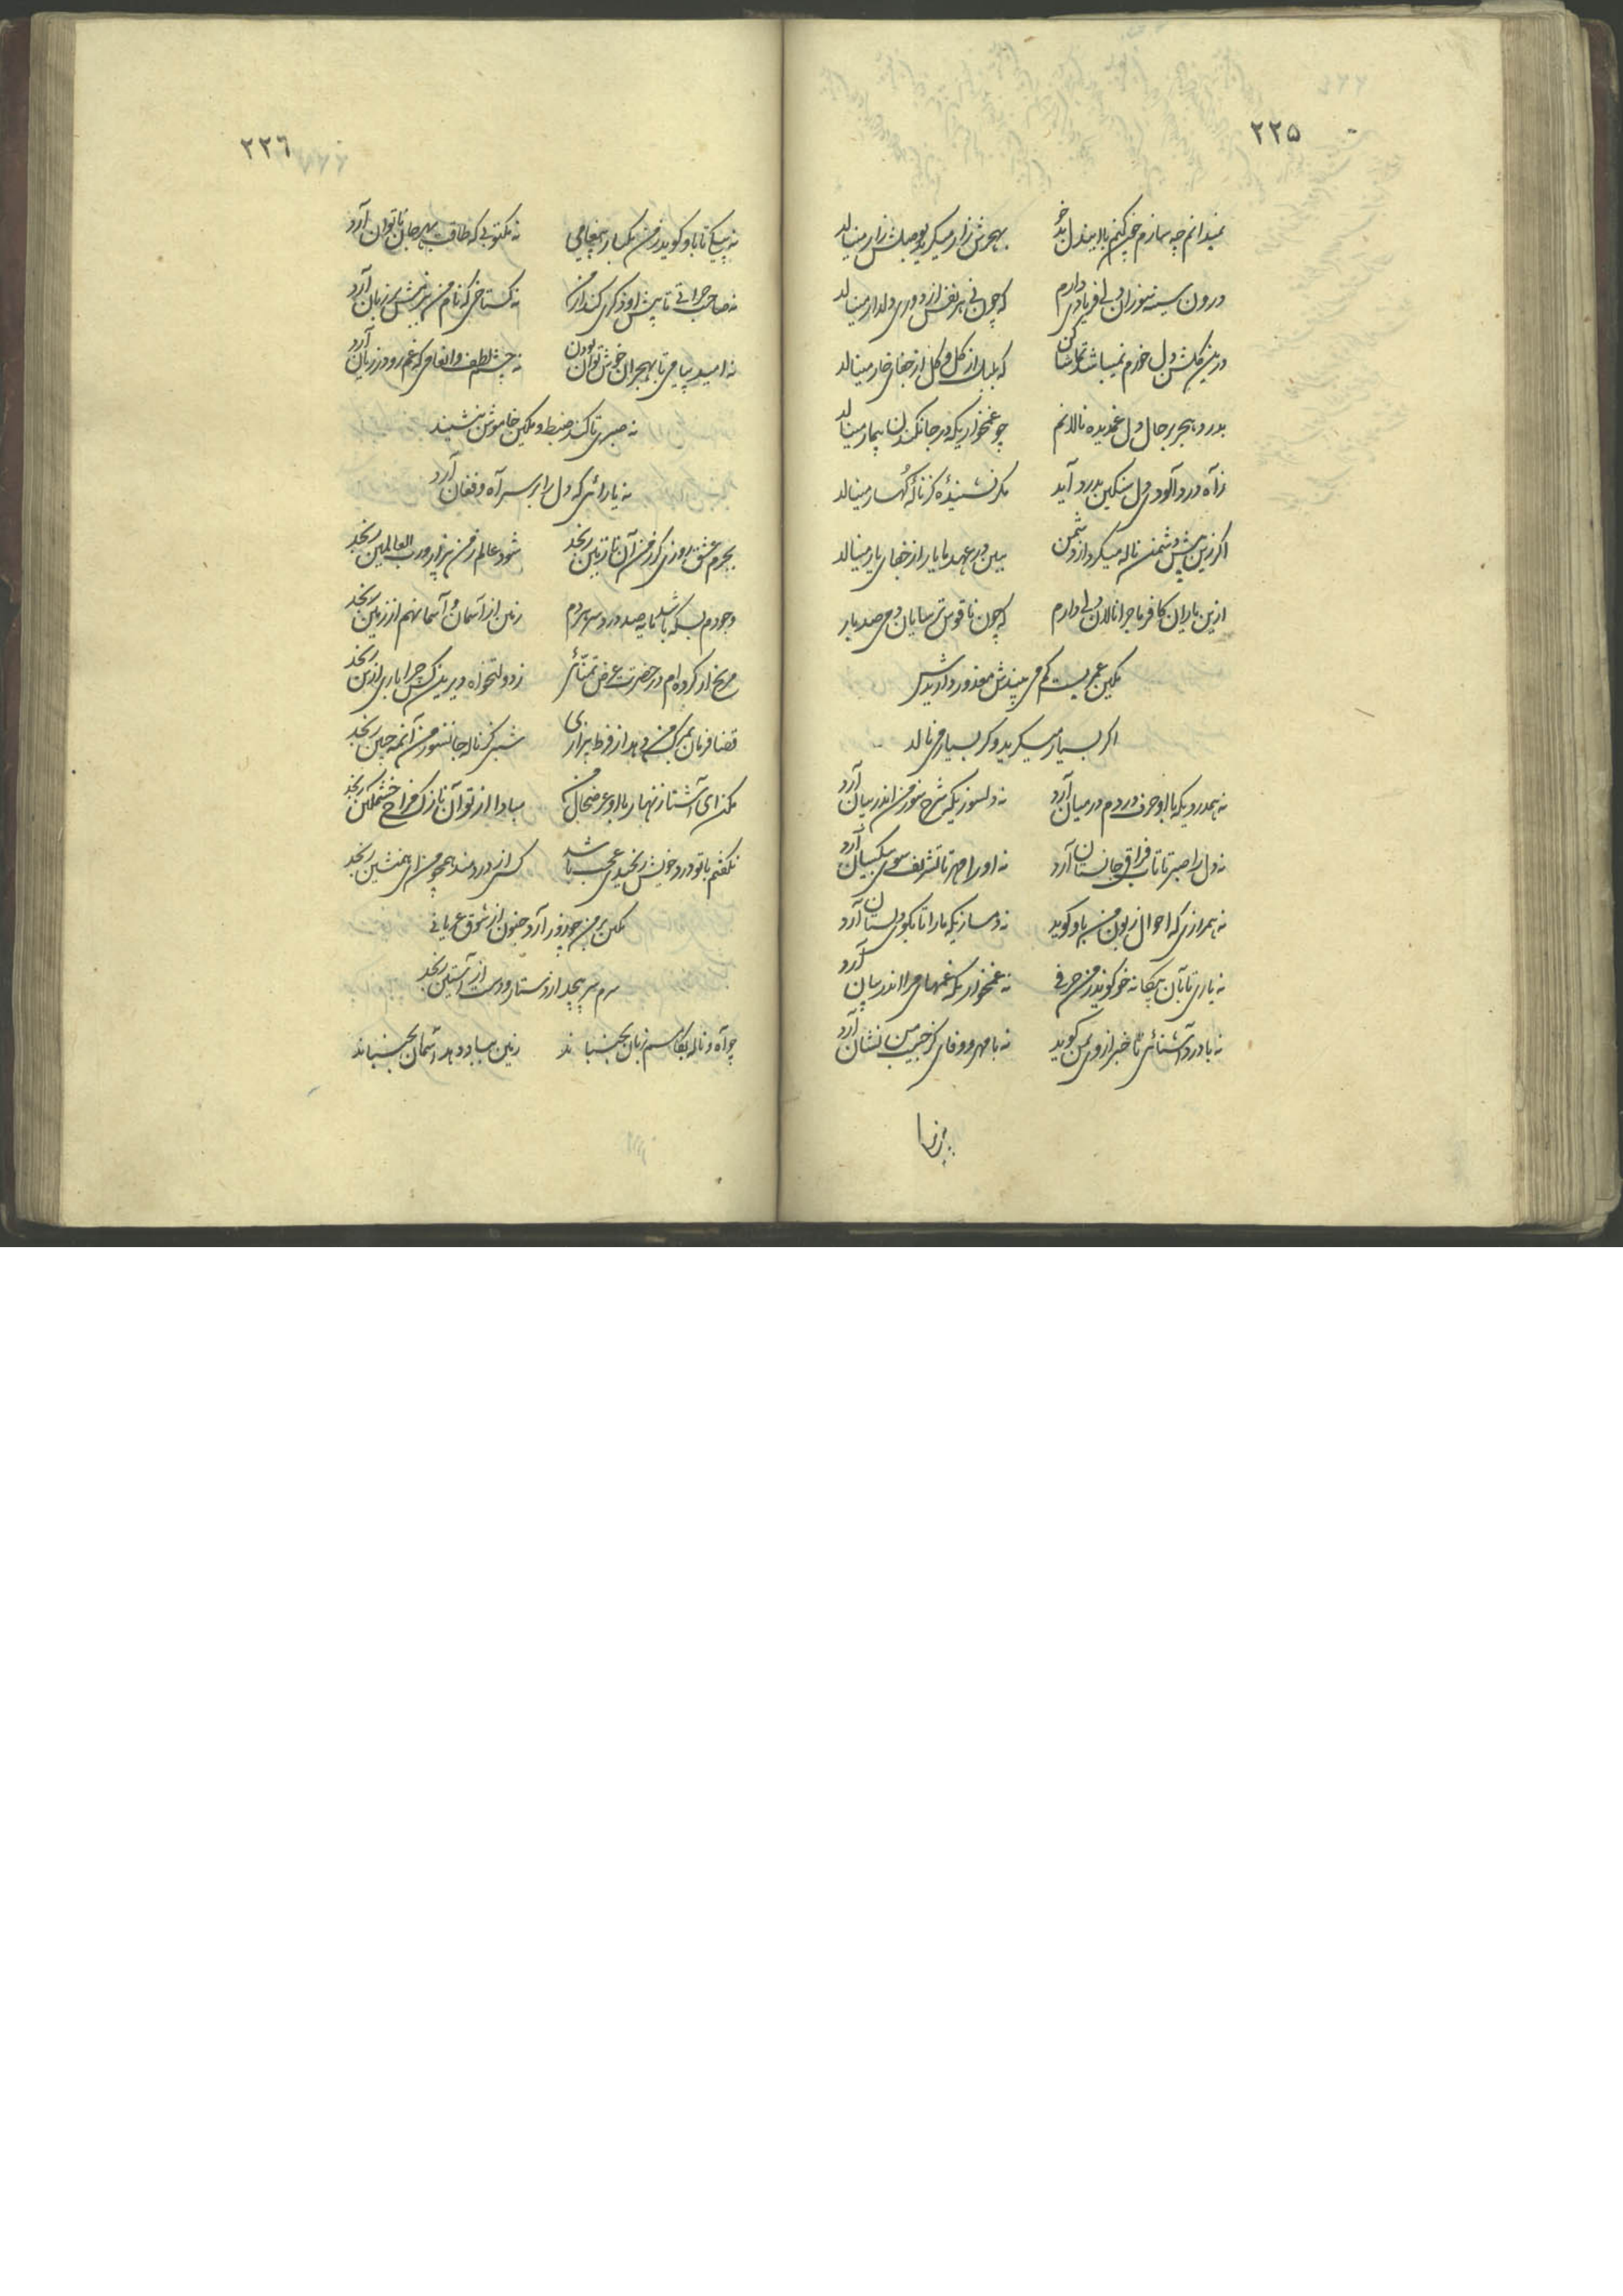 ۲۲۵
نمیدانم چه سازم چون کنم با این دل
بهجرش زار میگرید بوصلش زار مینالد
درون سینه سوزان دلی فریادی دارم
که چون نی هر نفس از دوری دلدار مینالد
درین گلشن دل خرم نمیباشد تماشا کن
که بلبل از گل و گل از جفای خار مینالد
بدرد هجر بر حال دل غمدیده نالانم
چو غمخواریکه در جانکندن بیمار مینالد
ز آه درد آلودی دل سنگین بدرد آید
مگر نشنیدهٔ کز نالهٔ کهسار مینالد
اگر زین پیش دشمن ناله میکرد از دشمن
ببین در عهد ما یار از جفای یار مینالد
ازین یاران کافر ماجرا نالان دلی دارم
که چون ناقوس ترسایان دمی صد بار
مکین عمریست کم می بیندش معذور داریدش
اگر بسیار میگرید وگر بسیار می نالد
نه همدردیکه با او حرف دردم در میان آرد
نه دلسوزیکه شرح سوز من اندر بیان آرد
نه دل را صبر تا تاب فراق جانستان آرد
نه او را مهر تا تشریف سوی بیکسان آرد
نه همرازی که احوال زبون من باو گوید
نه دمسازیکه ما را تا بکوی دلستان آرد
نه یاری تا بآن بیگانه خو گوید ز من حرفی
نه غمخواریکه غمهای مرا اندر بیان آرد
نه با درد آشنائی تا خبر از وی بمن گوید
نه با مهر و وفای کز حبیب من نشان آرد
نه پیکی تا باو گوید ز من یکبار پیغامی
۲۲٦
نه پیکی تا باو گوید ز من یکبار پیغامی
نه مکتوبی که طاقت بهر جان ناتوان آرد
نه صاحب جرأتی تا پیش او ذکری کند از من
نه گستاخی که نام من به پیشش بر زبان آرد
نه امید پیامی تا بهجران خوش توان بودن
نه چشم لطف و انعامی که غم رو در زیان آرد
نه صبری تا کند ضبط و مکین خاموش بنشیند
نه یارائی که دل را بر سر آه و فغان آرد
بجرم عشق روزی کز من آن نازنین رنجد
شود عالم ز من بیزار و رب العالمین رنجد
وجودم بسکه باشد مایه صد درد سر مردم
زمین از آسمان و آسمان هم از زمین رنجد
مرنج ار کرده ام در حضرتت عرض تمنائی
ز دولتخواه دیرین کس چرا باری ازین رنجد
قضا فرمان بمرگ من دهد از فرط بیزاری
شبی کز ناله جانسوز من آن مه جبین رنجد
مکن ای آشنا زنهار با او عرض حال من
مبادا از تو آن نازک مزاج خشمگین رنجد
نگفتم با تو درد خویش رنجیدی عجب باشد
کسی از دردمند همچو من ای همنشین رنجد
مکین بر من چو زور آرد جنون از شوق عریانی
سرم سر پیچد از دستار و دست از آستین رنجد
چو آه و ناله بگام زبان بجنباند
زمین بباد دهد آسمان بجنباند